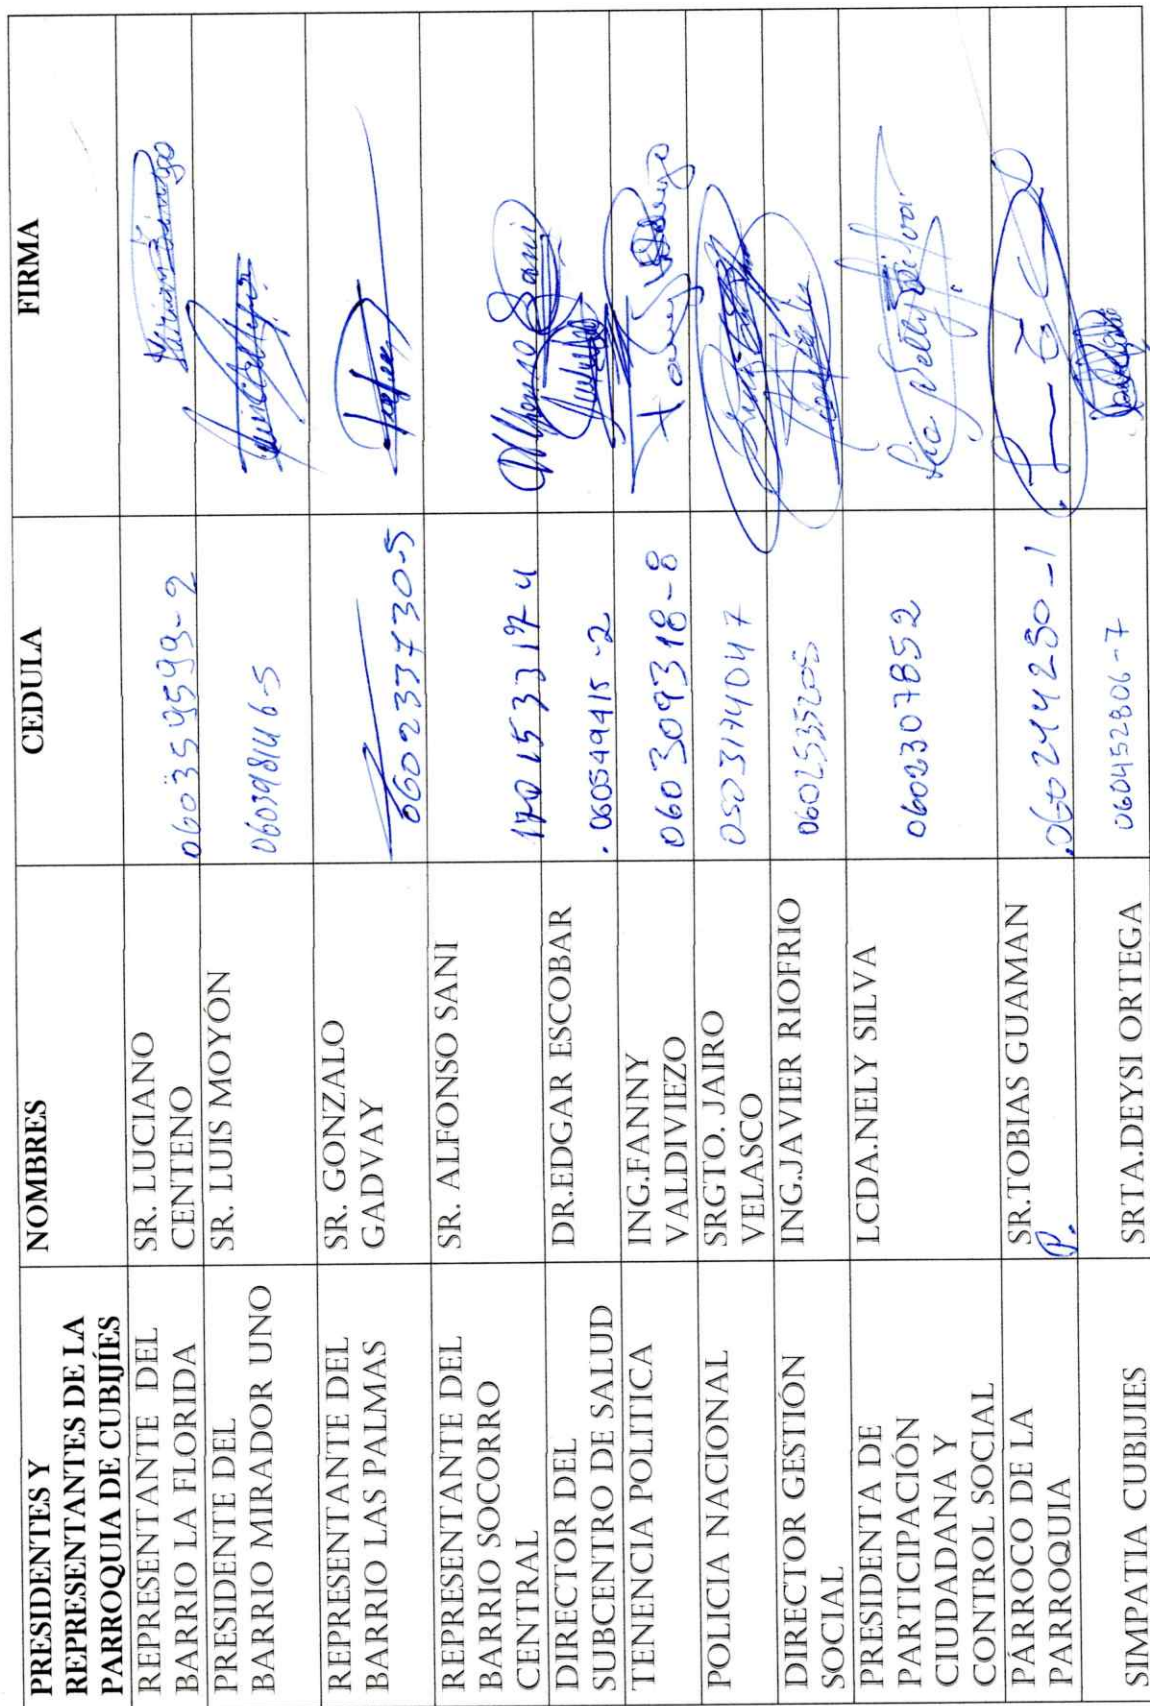 PRESIDENTES Y
REPRESENTANTES DE LA
PARROQUIA DE CUBIJÍES
NOMBRES
CEDULA
FIRMA
REPRESENTANTE DEL
BARRIO LA FLORIDA
SR. LUCIANO
CENTENO
060359599-2
PRESIDENTE DEL
BARRIO MIRADOR UNO
SR. LUIS MOYÓN
REPRESENTANTE DEL
BARRIO LAS PALMAS
SR. GONZALO
GADVAY
060233730-5
REPRESENTANTE DEL
BARRIO SOCORRO
CENTRAL
SR. ALFONSO SANI
Alfonso Sani
DIRECTOR DEL
SUBCENTRO DE SALUD
DR.EDGAR ESCOBAR
. 060549415-2
TENENCIA POLITICA
ING.FANNY
VALDIVIEZO
060309318-8
POLICIA NACIONAL
SRGTO. JAIRO
VELASCO
0503174047
DIRECTOR GESTIÓN
SOCIAL
ING.JAVIER RIOFRIO
PRESIDENTA DE
PARTICIPACIÓN
CIUDADANA Y
CONTROL SOCIAL
LCDA.NELY SILVA
0602307852
PÁRROCO DE LA
PARROQUIA
SR.TOBIAS GUAMAN
P.
SIMPATIA CUBIJIES
SRTA.DEYSI ORTEGA
060452806-7